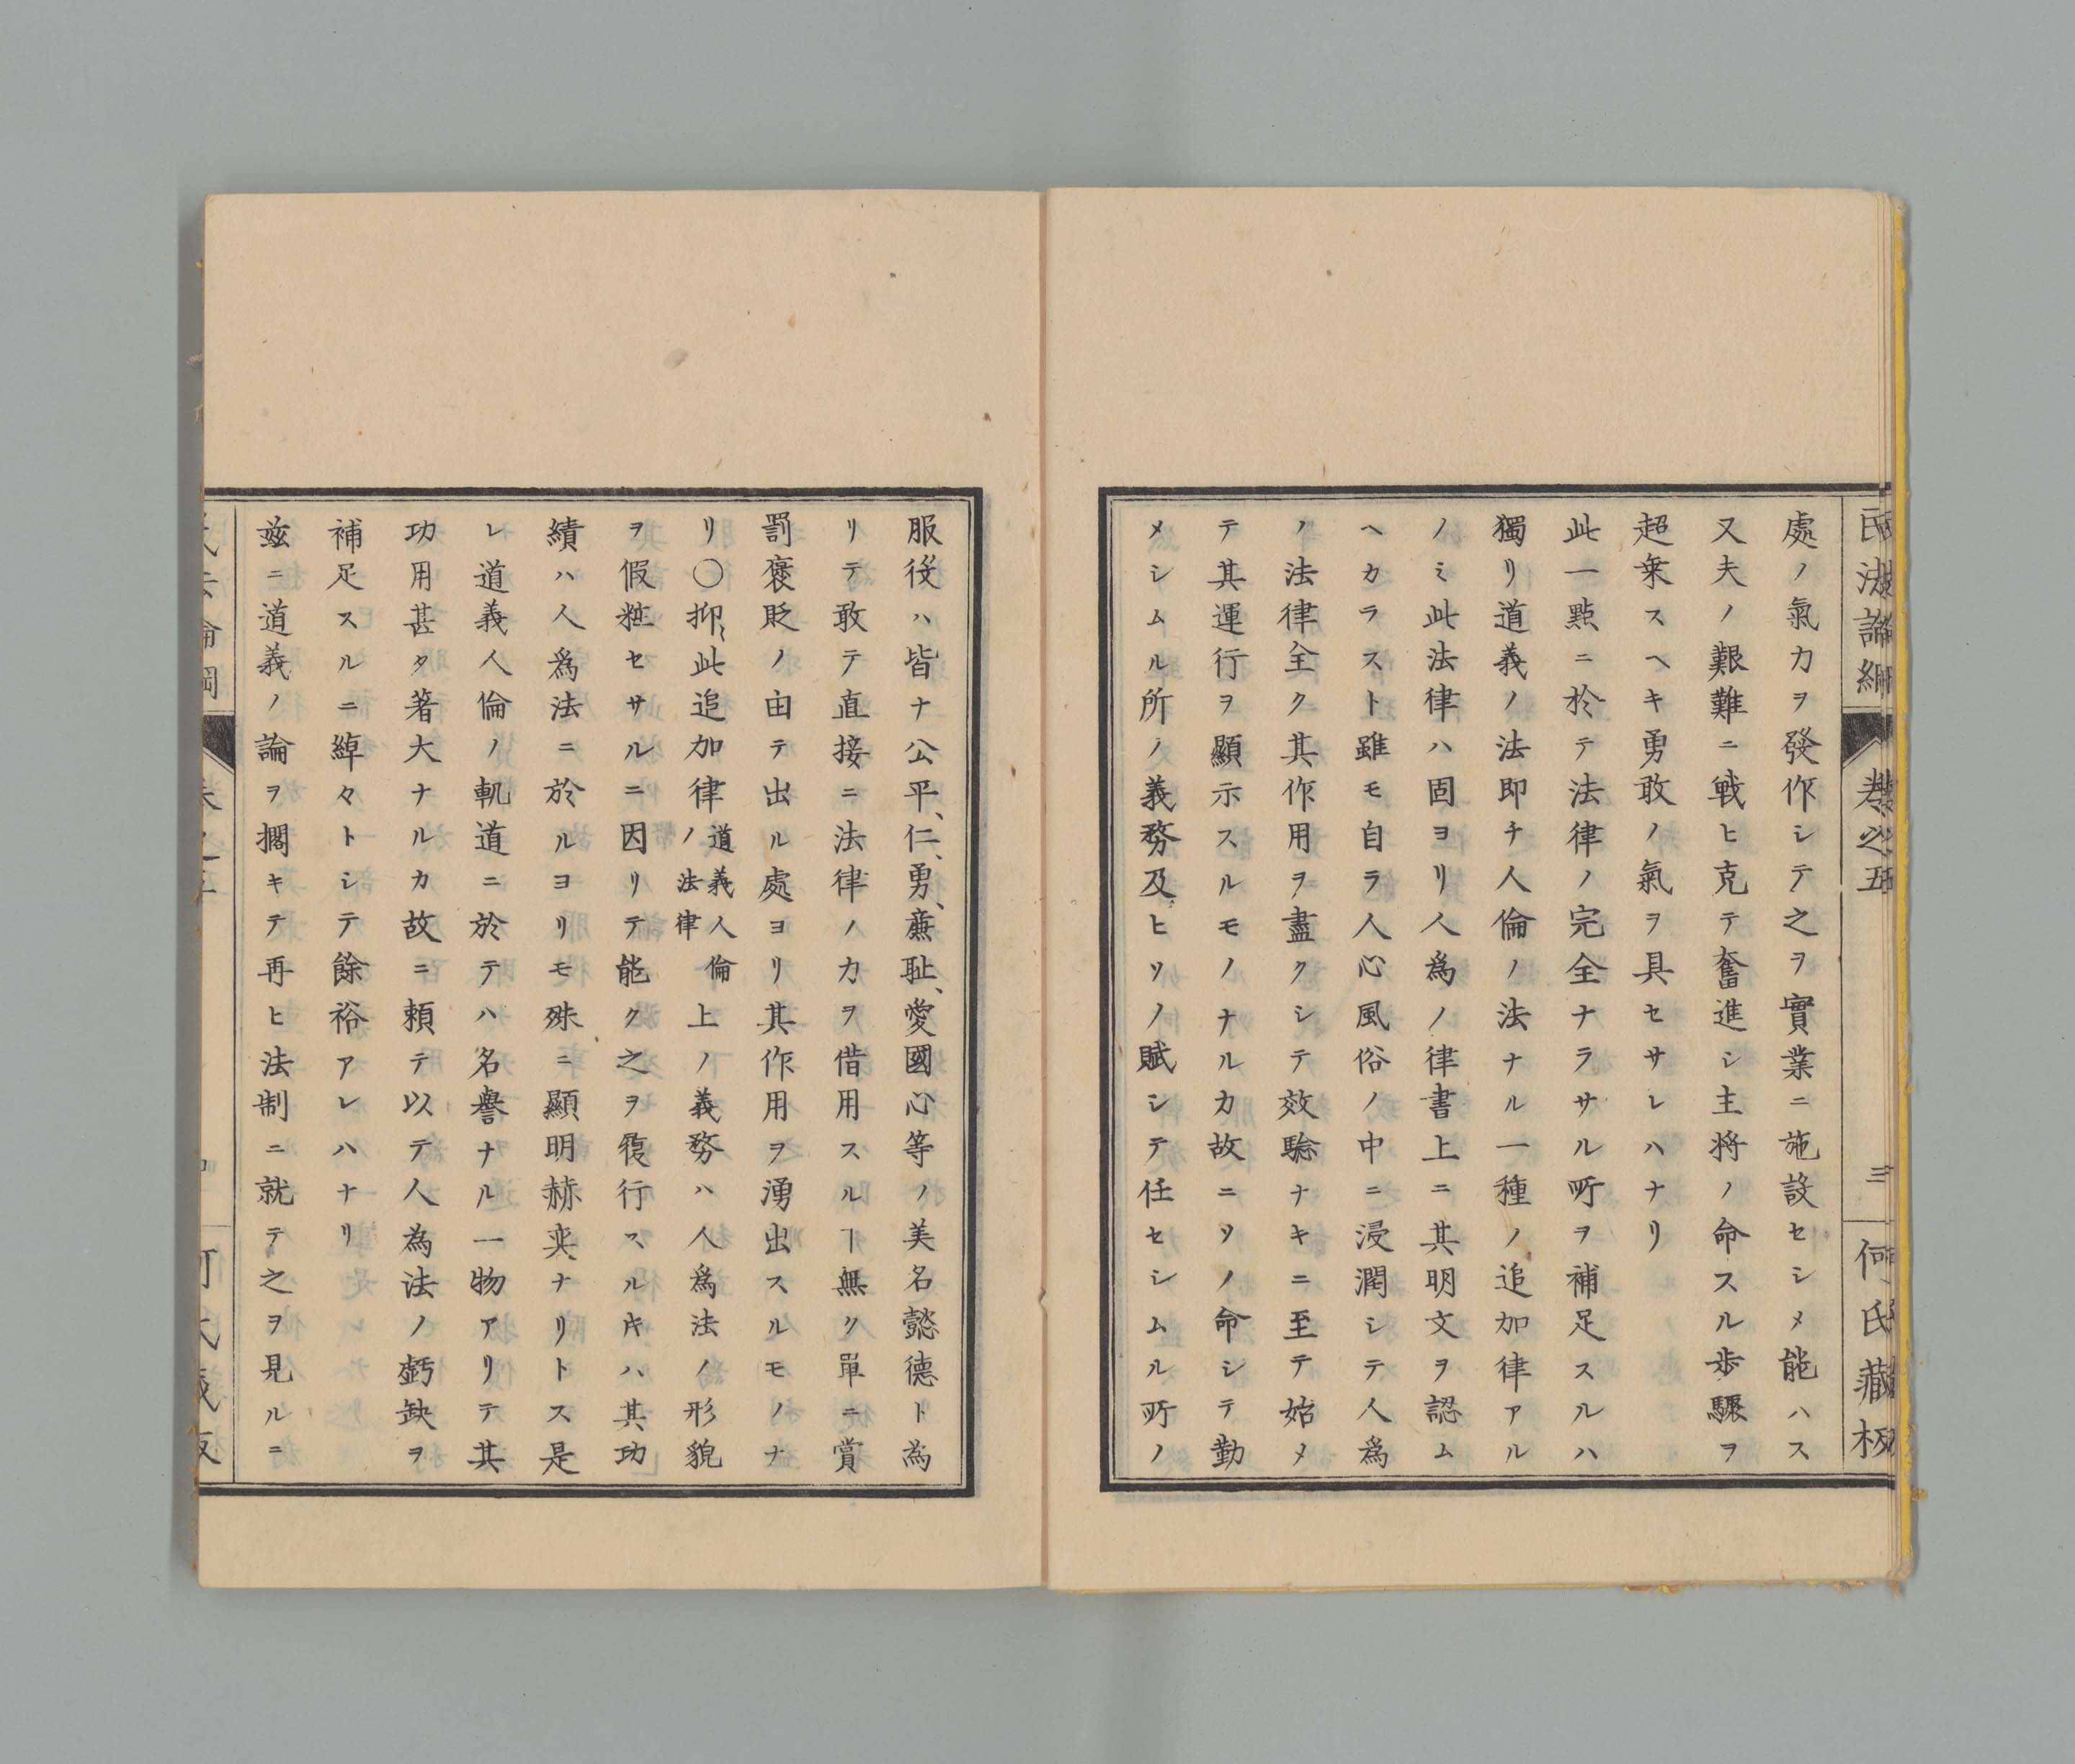 民法論綱 卷之五 三 何氏藏板
處ノ氣力ヲ發作シテ之ヲ實業ニ施設セシメ能ハス
又夫ノ艱難ニ戰ヒ克テ奮進シ主將ノ命スル歩驟ヲ
超乗スヘキ勇敢ノ氣ヲ具セサレハナリ
此一㸃ニ於テ法律ノ完全ナラサル所ヲ補足スルハ
獨リ道義ノ法即チ人倫ノ法ナル一種ノ追加律アル
ノミ此法律ハ固ヨリ人爲ノ律書上ニ其明文ヲ認ム
ヘカラスト雖モ自ラ人心風俗ノ中ニ浸潤シテ人爲
ノ法律全ク其作用ヲ盡クシテ效騐ナキニ至テ始メ
テ其運行ヲ顯示スルモノナルカ故ニソノ命シテ勤
メシムル所ノ義務及ヒソノ賦シテ任セシムル所ノ
服役ハ皆ナ公平、仁、勇、廉耻、愛國心等ノ美名懿德ト為
リテ敢テ直接ニ法律ノ力ヲ借用スルヿ無ク單ニ賞
罰褒貶ノ由テ出ル處ヨリ其作用ヲ湧出スルモノナ
リ〇抑〻此追加律道義人倫ノ法律上ノ義務ハ人爲法ノ形貌
ヲ假粧セサルニ因リテ能ク之ヲ履行スルキハ其功
績ハ人爲法ニ於ルヨリモ殊ニ顯明赫奕ナリトス是
レ道義人倫ノ軌道ニ於テハ名譽ナル一物アリテ其
功用甚タ著大ナルカ故ニ頼テ以テ人為法ノ虧缺ヲ
補足スルニ綽々トシテ餘裕アレハナリ
玆ニ道義ノ論ヲ擱キテ再ヒ法制ニ就テ之ヲ見ルニ